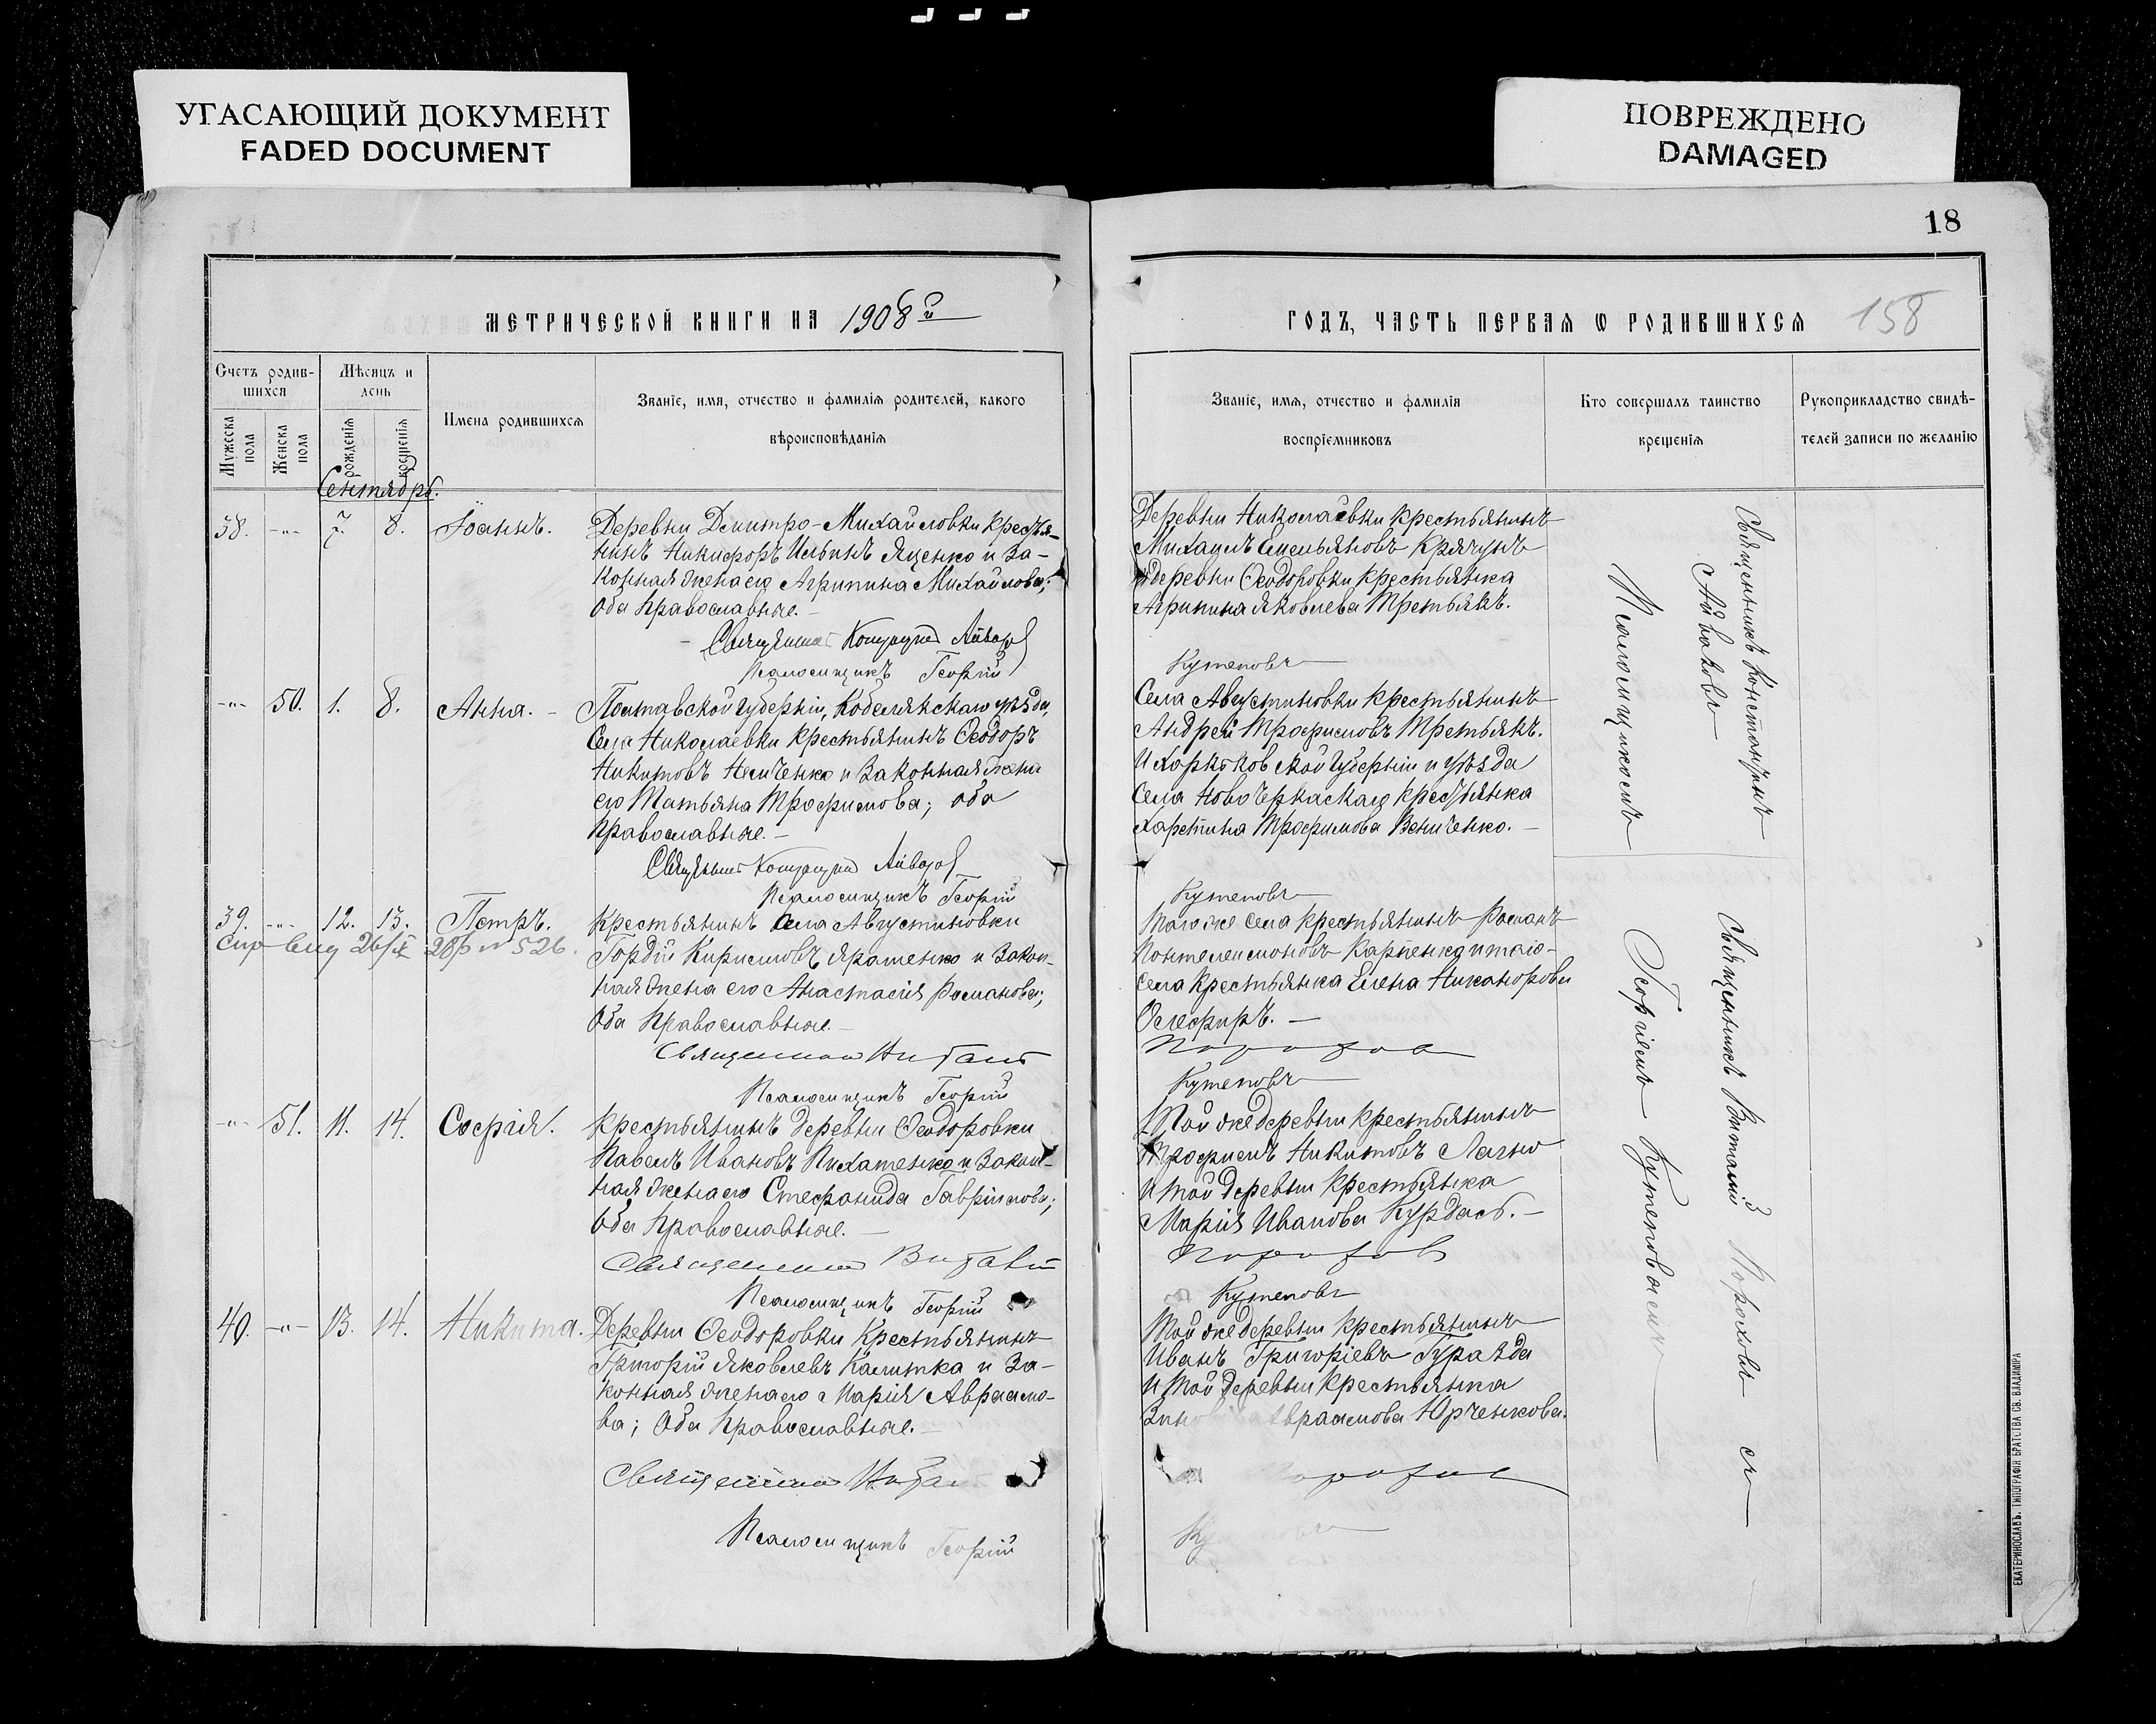 УГАСАЮЩИЙ ДОКУМЕНТ
FADED DOCUMENT
ПОВРЕЖДЕНО
DAMAGED
18
МЕТРИЧЕСКОЙ КНИГИ НА 1908й
ГОДЪ, ЧАСТЬ ПЕРВАЯ Ѡ РОДИВШИХСЯ
158
Счетъ родив-
шихся
Мѣсяцъ и
день
Мужеска
пола
Женска
пола
рожденія
крещенія
Имена родившихся
Званіе, имя, отчество и фамилія родителей, какого
вѣроисповѣданія
Званіе, имя, отчество и фамилія
воспріемниковъ
Кто совершалъ таинство
крещенія
Рукоприкладство свидѣ-
телей записи по желанію
Сентябрь.
38. -"- 7. 8. Іоаннъ.
Деревни Димитро-Михайловки крестья-
нинъ Никифоръ Ильинъ Яценко и за-
конная жена его Агрипина Михайлова;
оба православные.-
Священникъ Айваровъ
Псаломщикъ Георгій
Деревни Николаевки крестьянинъ
Михаилъ Емельяновъ Крячунъ
и деревни Ѳеодоровки крестьянка
Агрипина Яковлева Третьякъ.
Кутеповъ
-"- 50. 1. 8. Анна. -
Полтавской губерніи, Кобелякскаго уѣзда,
Села Николаевки крестьянинъ Ѳеодоръ
Никитовъ и законная жена
его Татьяна Трофимова; оба
православные.-
Священникъ Айваровъ
Псаломщикъ Георгій
Села Августиновки крестьянинъ
Андрей Трофимовъ Третьякъ.
и Харьковской губерніи и уѣзда
Села Новочеркаскаго крестьянка
Харитина Трофимова Величенко.-
Кутеповъ
39. -"- 12. 13. Петръ.
26/IX 28 № 526.
Крестьянинъ Села Августиновки
Гордій Кирилловъ Ярошенко и закон-
ная жена его Анастасія Романова;
оба православные.-
Священникъ Виталій
Псаломщикъ Георгій
Того же села крестьянинъ Романъ
Понтелеимоновъ Карпенко и того-
села крестьянка Елена Никанорова
Олефиръ.-
Пороховъ
Кутеповъ
-"- 51. 11. 14. Софія.
Крестьянинъ деревни Ѳеодоровки
Павелъ Ивановъ Пихатенко и закон-
ная жена его Стефанида Гавріилова;
оба православные.-
Священникъ Виталій
Псаломщикъ Георгій
Той же деревни крестьянинъ
Трофимъ Никитовъ Лагно
и той деревни крестьянка
Марія Иванова Курдасъ.-
Пороховъ
Кутеповъ
40. -"- 13. 14. Никита.
Деревни Ѳеодоровки Крестьянинъ
Григорій Яковлевъ Калитка и за-
конная жена его Марія Авраамо-
ва; оба православные.-
Священникъ Виталій
Псаломщикъ Георгій
Той же деревни крестьянинъ
Иванъ Григоріевъ
и той деревни крестьянка
Авраамова Юрченкова.
Священникъ Константинъ
Айваровъ
Псаломщикомъ
Священникъ Виталій Пороховъ съ
Георгіемъ Кутеповымъ
ЕКАТЕРИНОСЛАВЪ. ТИПОГРАФІЯ БРАТСТВА СВ. ВЛАДИМІРА